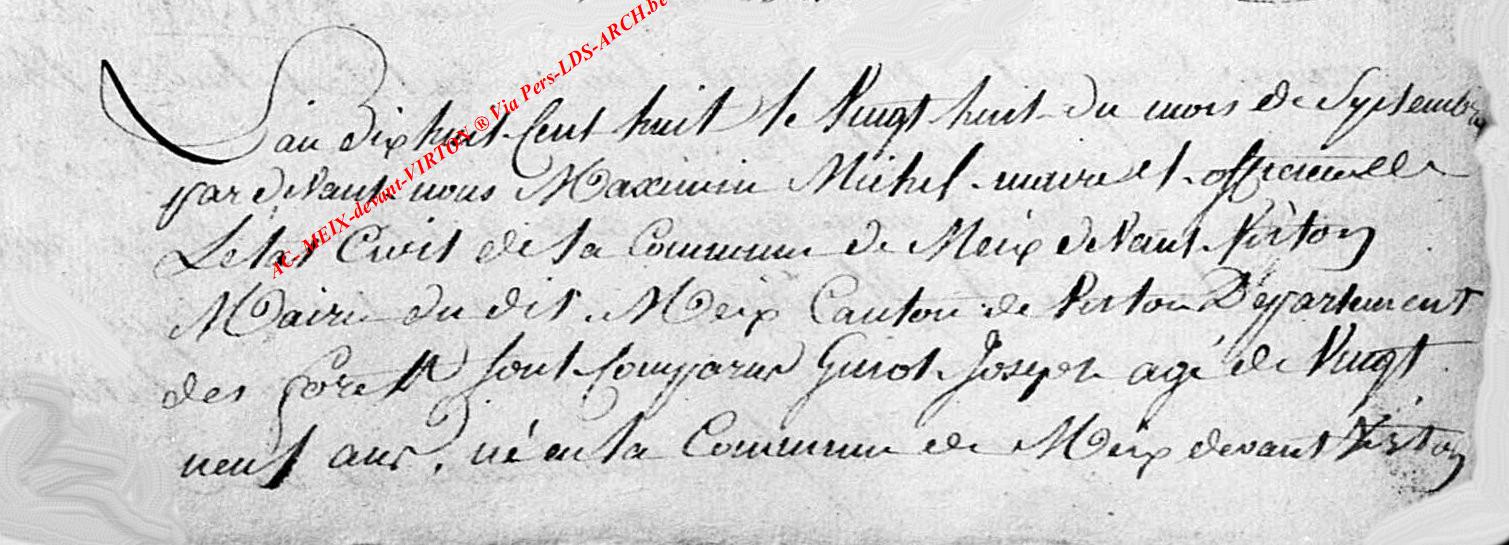 L'an dix huit Cent huit le Vingt huit du mois de Septembre
par devant nous Maximin Michel maire et officier de
L'etat Civil de la Commune de Meix devant Virton
Mairie du dit Meix Canton de Virton Département
des forêts sont comparus Guiot Joseph agé de Vingt
neuf ans, né en la Commune de Meix devant Virton
AC-MEIX-devant-VIRTON ® Via Pers-LDS-ARCH.be